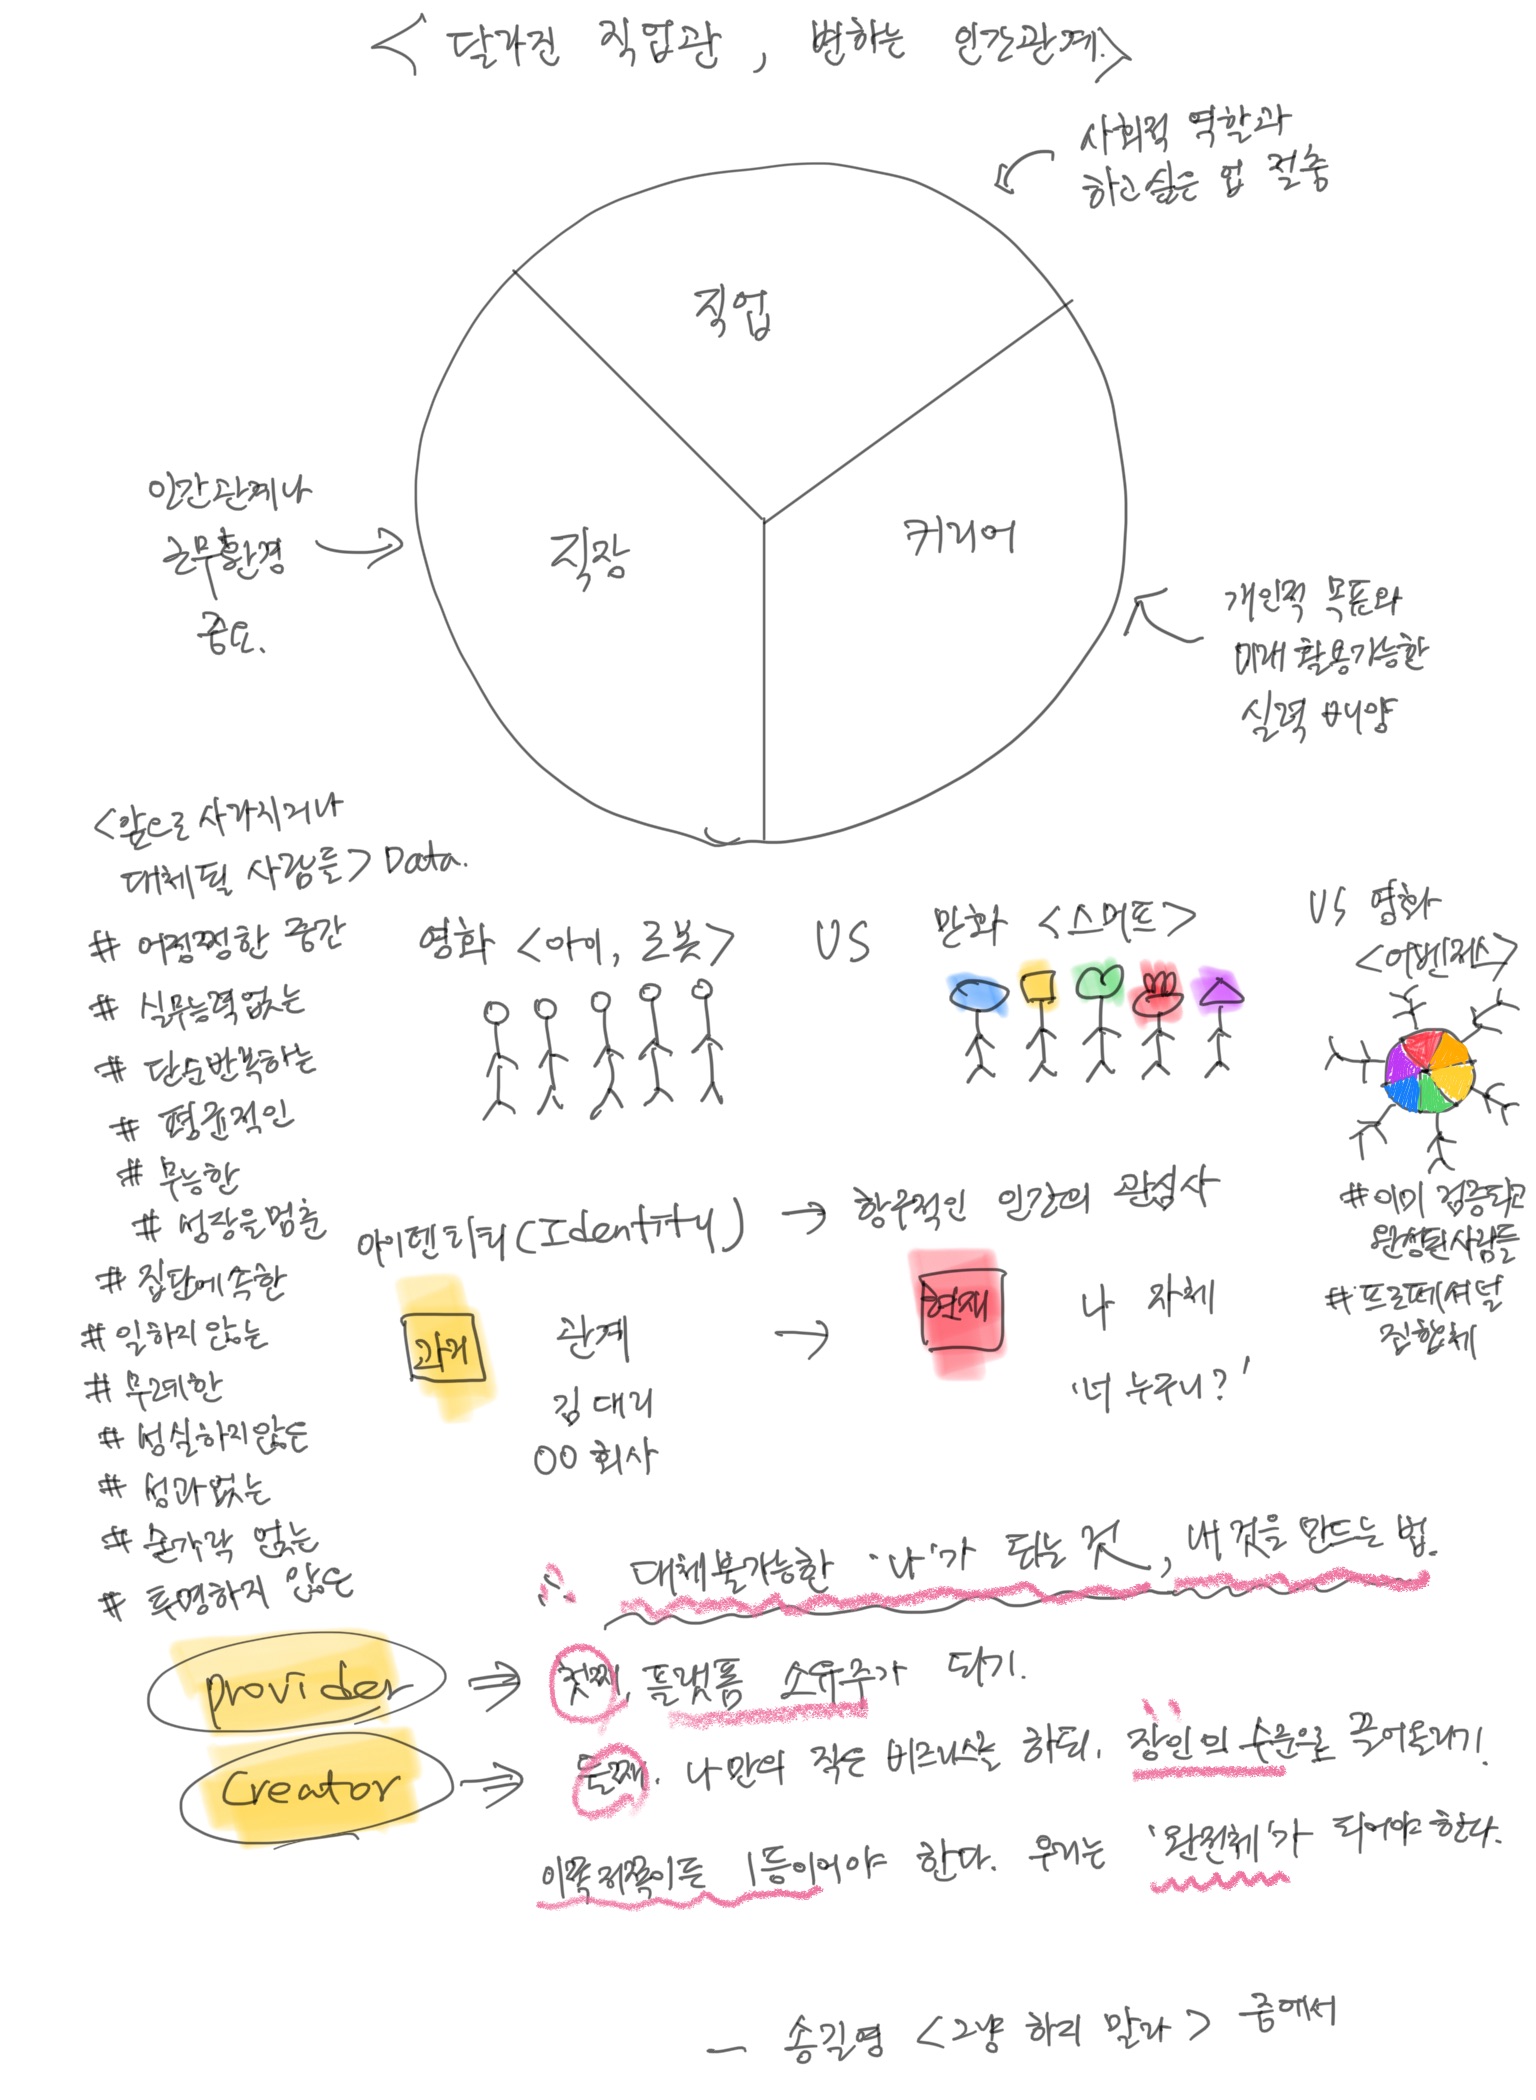 <달라진 직업관, 변하는 인간관계>
사회적 역할과
하고싶은 업 절충
직업
인간관계나
근무환경
중요.
직장
커리어
개인적 목표와
미래 활용가능한
실력 배양
<앞으로 사라지거나
대체될 사람들> Data.
# 어정쩡한 중간
# 실무능력없는
# 단순반복하는
# 평균적인
# 무능한
# 성장을멈춘
# 집단에속한
# 일하지않는
# 무례한
# 성실하지않은
# 성과없는
# 숟가락 얹는
# 투명하지 않은
영화 <아이, 로봇> VS 만화 <스머프>
VS 영화
<어벤져스>
#이미 검증되고
완성된사람들
#프로페셔널
집합체
아이덴티티(Identity) → 항구적인 인간의 관심사
과거
관계
김대리
○○회사
→
현재
나 자체
'너 누구니?'
대체불가능한 '나'가 되는 것, 내것을 만드는 법.
provider ⇒ 첫째, 플랫폼 소유주가 되기.
Creator ⇒ 둘째. 나만의 작은 비즈니스를 하되, 장인의 수준으로 끌어올리기!
이쪽저쪽이든 1등이어야 한다. 우리는 '완전체'가 되어야한다.
— 송길영 <그냥 하지 말라> 중에서